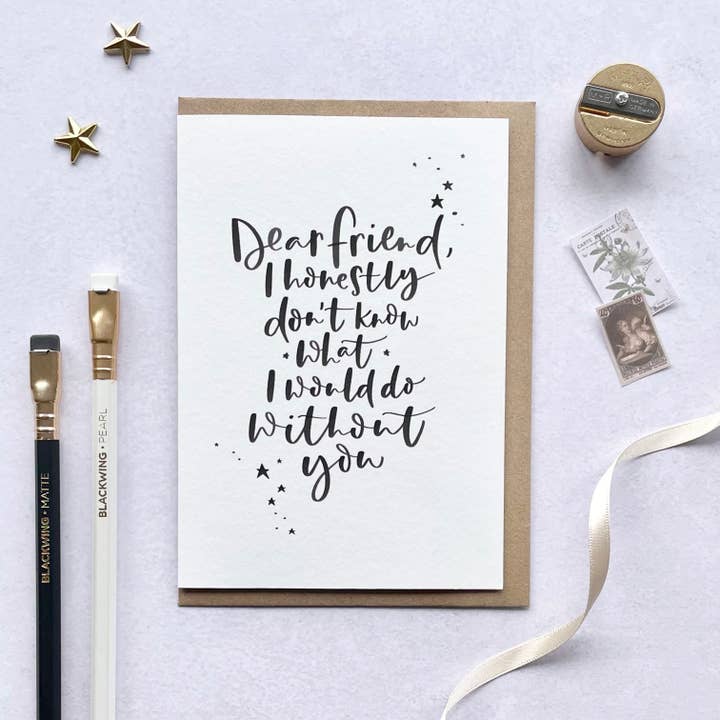 Dear friend,
I honestly
don't know
what
I would do
without
you
BLACKWING · MATTE
BLACKWING · PEARL
MADE IN
GERMANY
CARTE POSTALE